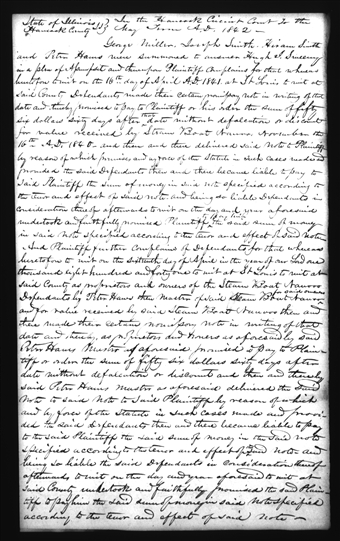 State of Illinois In the Hancock Circuit Court to the
Hancock County May Term A.D. 1842 –
George Miller Joseph Smith Hiram Smith
and Peter Haws were summoned to answer Hugh
in a plea of and thereupon Plaintiff Complains for that whereas
heretofore to wit on the 16th day of A.D. 1841 at St Louis to wit at
Said County Defendants made their certain promisory note in writing of that
date and thereby promised to pay to Plaintiff or his order the sum of fifty
six dollars sixty days after date without defalcation or discount
for value received by Steam Boat Nauvoo November the
16th A.D. 1840 and then and there delivered said Note to Plaintiff
by reason of which premises and by force of the Statute in such cases made and
provided the said Defendants then and there became liable to pay to
Said Plaintiff the Sum of money in said note specified according to
the tenor and effect of said note and being so liable Defendants in
consideration thereof afterwards to wit on the day and year aforesaid
undertook and faithfully promised Plaintiff the said sum of money
in said Note specified according to the tenor and effect of said note
And Plaintiff further Complains of Defendants for that whereas
heretofore to wit on the sixteenth day of April in the year of our Lord one
thousand eight hundred and forty one to wit at St Louis to wit at
Said County as proprietors and owners of the Steam Boat Nauvoo
Defendants by Peter Haws the Master of said Steam Boat Nauvoo
and for value received by Said Steam Boat Nauvoo then and
there made their certain promisory note in writing of that
date and thereby as proprietors and Owners as aforesaid by said
Peter Haws Master as aforesaid promised to Pay to Plain-
tiff or order the sum of fifty six dollars sixty days after
date without defalcation or discount and then and thereby
said Peter Haws Master as aforesaid delivered the said
Note to said Note to Said Plaintiff by reason of which
and by force of the Statute in such cases made and provi-
ded the said Defendants then and there became liable to pay
to the said Plaintiff the said sum of money in the said note
specified according to the tenor and effect of said Note and
being so liable the said Defendants in Consideration thereof
afterwards to wit on the day and year aforesaid to wit at
Said County undertook and faithfully promised the said Plain-
tiff to pay him the said sum of money in said Note specified
according to the tenor and effect of said Note –